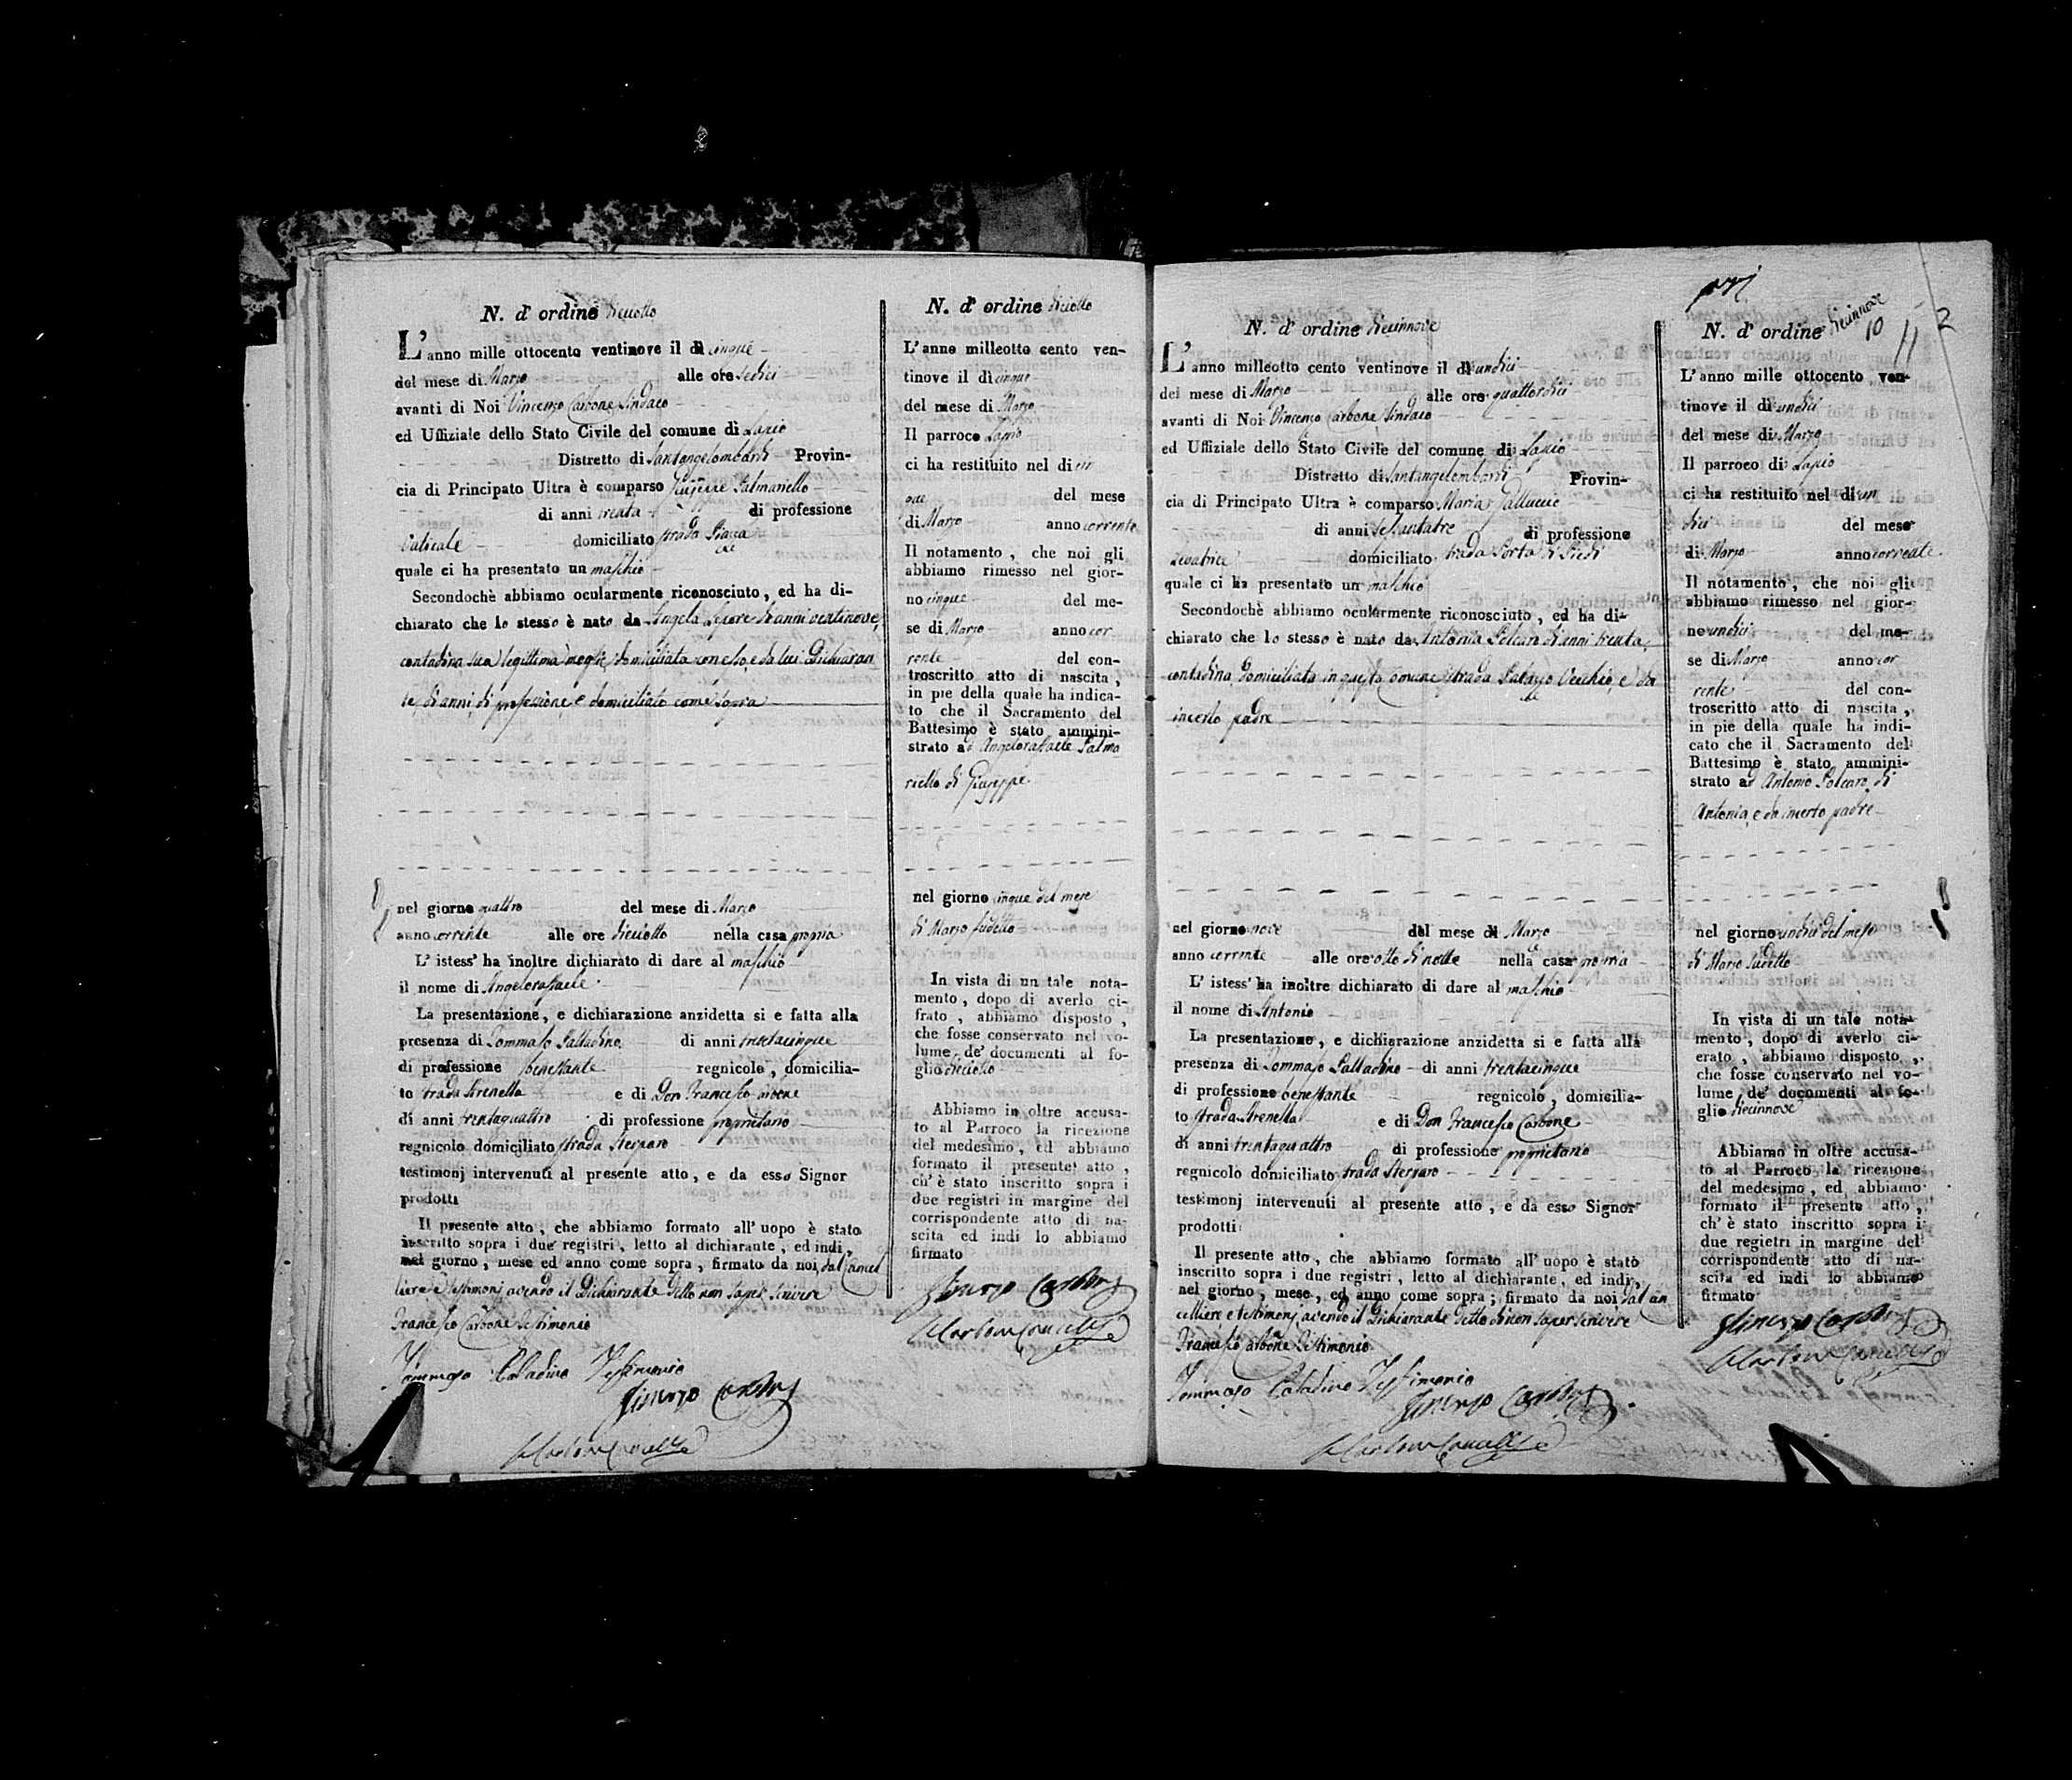 N. d' ordine diciotto
L' anno mille ottocento ventinove il dì cinque
del mese di Marzo alle ore sedici
avanti di Noi Vincenzo Carbone Sindaco
ed Uffiziale dello Stato Civile del comune di Lapio
Distretto di Santangelombardi Provin-
cia di Principato Ultra è comparso Giuseppe Palmariello
di anni trenta di professione
domiciliato strada Piazza
quale ci ha presentato un maschio
Secondochè abbiamo ocularmente riconosciuto, ed ha di-
chiarato che lo stesso è nato da Angela Lepore di anni ventinove,
contadina sua legittima moglie domiciliata con esso, e da lui Dichiaran
te, di anni, di professione e domiciliato come sopra
nel giorno quattro del mese di Marzo
anno corrente alle ore dieciotto nella casa propria
L' istess' ha inoltre dichiarato di dare al maschio
il nome di Angelorafaele
La presentazione, e dichiarazione anzidetta si e fatta alla
presenza di Tommaso Palladino di anni trentacinque
di professione benestante regnicolo, domicilia-
to strada Arenella e di Don Francesco Carbone
di anni trentaquattro di professione proprietario
regnicolo domiciliato strada
testimonj intervenuti al presente atto, e da esso Signor
prodotti
Il presente atto, che abbiamo formato all' uopo è stato
inscritto sopra i due registri, letto al dichiarante, ed indi,
nel giorno, mese ed anno come sopra, firmato da noi, dal Cancel
liere e testimonj avendo il Dichiarante detto non saper scrivere
Francesco Carbone testimonio
Tommaso Paladino Testimonio
Vincenzo Carbone
N. d' ordine diciotto
L' anno milleotto cento ven-
tinove il dì cinque
del mese di Marzo
Il parroco Lapio
ci ha restituito nel di cin
que del mese
di Marzo anno corrente
Il notamento, che noi gli
abbiamo rimesso nel gior-
no cinque del me-
se di Marzo anno cor
rente del con-
troscritto atto di nascita,
in pie della quale ha indica-
to che il Sacramento del
Battesimo è stato ammini-
strato ad Angelorafaele Palma
riello di Giuseppe
nel giorno cinque del mese
di Marzo sudetto
In vista di un tale nota-
mento, dopo di averlo ci-
frato, abbiamo disposto,
che fosse conservato nel vo-
lume de' documenti al fo-
glio diciotto
Abbiamo in oltre accusa-
to al Parroco la ricezione
del medesimo, ed abbiamo
formato il presente atto,
ch' è stato inscritto sopra i
due registri in margine del
corrispondente atto di na-
scita ed indi lo abbiamo
firmato
Vincenzo Carbone
N. d' ordine diecinnove
L' anno milleotto cento ventinove il dì undici
del mese di Marzo alle ore quattordici
avanti di Noi Vincenzo Carbone Sindaco
ed Uffiziale dello Stato Civile del comune di Lapio
Distretto di Santangelombardi Provin-
cia di Principato Ultra è comparso Maria Galluccio
di anni settantatre di professione
Levatrice domiciliato strada Porta di Piedi
quale ci ha presentato un maschio
Secondochè abbiamo ocularmente riconosciuto, ed ha di-
chiarato che lo stesso è nato da Antonia Polcaro di anni trenta,
contadina, domiciliata in questo comune strada Palazzo Vecchio, e da
incerto padre
nel giorno nove del mese di Marzo
anno corrente alle ore otto di notte nella casa propria
L' istess' ha inoltre dichiarato di dare al maschio
il nome di Antonio
La presentazione, e dichiarazione anzidetta si e fatta alla
presenza di Tommaso Palladino di anni trentacinque
di professione benestante regnicolo, domicilia-
to strada Arenella e di Don Francesco Carbone
di anni trentaquattro di professione proprietario
regnicolo domiciliato strada
testimonj intervenuti al presente atto, e da esso Signor
prodotti
Il presente atto, che abbiamo formato all' uopo è stato
inscritto sopra i due registri, letto al dichiarante, ed indi,
nel giorno, mese, ed anno come sopra; firmato da noi dal Can
celliere, e testimonj avendo il Dichiarante detto di non saper scrivere
Francesco Carbone testimonio
Tommaso Paladino Testimonio
Vincenzo Carbone
10 11 2
N. d' ordine diecinnove
L' anno mille ottocento ven-
tinove il dì undici
del mese di Marzo
Il parroco di Lapio
ci ha restituito nel di un
dici del mese
di Marzo anno corrente
Il notamento, che noi gli
abbiamo rimesso nel gior-
no undici del me-
se di Marzo anno cor
rente del con-
troscritto atto di nascita,
in pie della quale ha indi-
cato che il Sacramento del
Battesimo è stato ammini-
strato ad Antonio Polcaro di
Antonia, e da incerto padre
nel giorno undici del mese
di Marzo sudetto
In vista di un tale nota-
mento, dopo di averlo ci-
erato, abbiamo disposto,
che fosse conservato nel vo-
lume de' documenti al fo-
glio diecinnove
Abbiamo in oltre accusa-
to al Parroco la ricezione
del medesimo, ed abbiamo
formato il presente atto,
ch' è stato inscritto sopra i
due registri in margine del
corrispondente atto di na-
scita ed indi lo abbiamo
firmato
Vincenzo Carbone